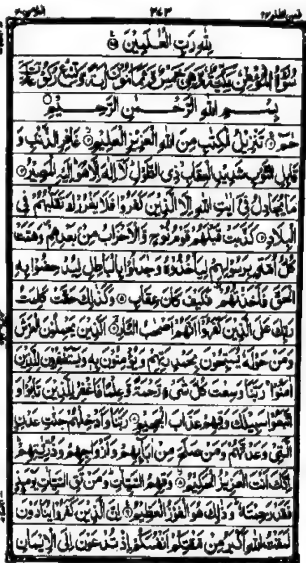 لِلّٰهِ رَبِّ الْعٰلَمِيْنَ
بِسْمِ اللّٰهِ الرَّحْمٰنِ الرَّحِيْمِ
حٰمٓ تَنْزِيْلُ الْكِتٰبِ مِنَ اللّٰهِ الْعَزِيْزِ الْعَلِيْمِ غَافِرِ الذَّنْۢبِ وَ
قَابِلِ التَّوْبِ شَدِيْدِ الْعِقَابِ ذِى الطَّوْلِ لَاۤ اِلٰهَ اِلَّا هُوَ اِلَيْهِ الْمَصِيْرُ
مَا يُجَادِلُ فِىْۤ اٰيٰتِ اللّٰهِ اِلَّا الَّذِيْنَ كَفَرُوْا فَلَا يَغْرُرْكَ تَقَلُّبُهُمْ فِى
الْبِلَادِ كَذَّبَتْ قَبْلَهُمْ قَوْمُ نُوْحٍ وَّالْاَحْزَابُ مِنْۢ بَعْدِهِمْ وَهَمَّتْ
كُلُّ اُمَّةٍۭ بِرَسُوْلِهِمْ لِيَاْخُذُوْهُ وَجَادَلُوْا بِالْبَاطِلِ لِيُدْحِضُوْا بِهِ
الْحَقَّ فَاَخَذْتُهُمْ فَكَيْفَ كَانَ عِقَابِ وَكَذٰلِكَ حَقَّتْ كَلِمَتُ
رَبِّكَ عَلَى الَّذِيْنَ كَفَرُوْۤا اَنَّهُمْ اَصْحٰبُ النَّارِ اَلَّذِيْنَ يَحْمِلُوْنَ الْعَرْشَ
وَمَنْ حَوْلَهٗ يُسَبِّحُوْنَ بِحَمْدِ رَبِّهِمْ وَيُؤْمِنُوْنَ بِهٖ وَيَسْتَغْفِرُوْنَ لِلَّذِيْنَ
اٰمَنُوْا رَبَّنَا وَسِعْتَ كُلَّ شَىْءٍ رَّحْمَةً وَّعِلْمًا فَاغْفِرْ لِلَّذِيْنَ تَابُوْا وَ
اتَّبَعُوْا سَبِيْلَكَ وَقِهِمْ عَذَابَ الْجَحِيْمِ رَبَّنَا وَاَدْخِلْهُمْ جَنّٰتِ عَدْنِ
الَّتِىْ وَعَدْتَّهُمْ وَمَنْ صَلَحَ مِنْ اٰبَآئِهِمْ وَاَزْوَاجِهِمْ وَذُرِّيّٰتِهِمْ
اِنَّكَ اَنْتَ الْعَزِيْزُ الْحَكِيْمُ وَقِهِمُ السَّيِّاٰتِ وَمَنْ تَقِ السَّيِّاٰتِ يَوْمَئِذٍ
فَقَدْ رَحِمْتَهٗ وَذٰلِكَ هُوَ الْفَوْزُ الْعَظِيْمُ اِنَّ الَّذِيْنَ كَفَرُوْا يُنَادَوْنَ
لَمَقْتُ اللّٰهِ اَكْبَرُ مِنْ مَّقْتِكُمْ اَنْفُسَكُمْ اِذْ تُدْعَوْنَ اِلَى الْاِيْمَانِ